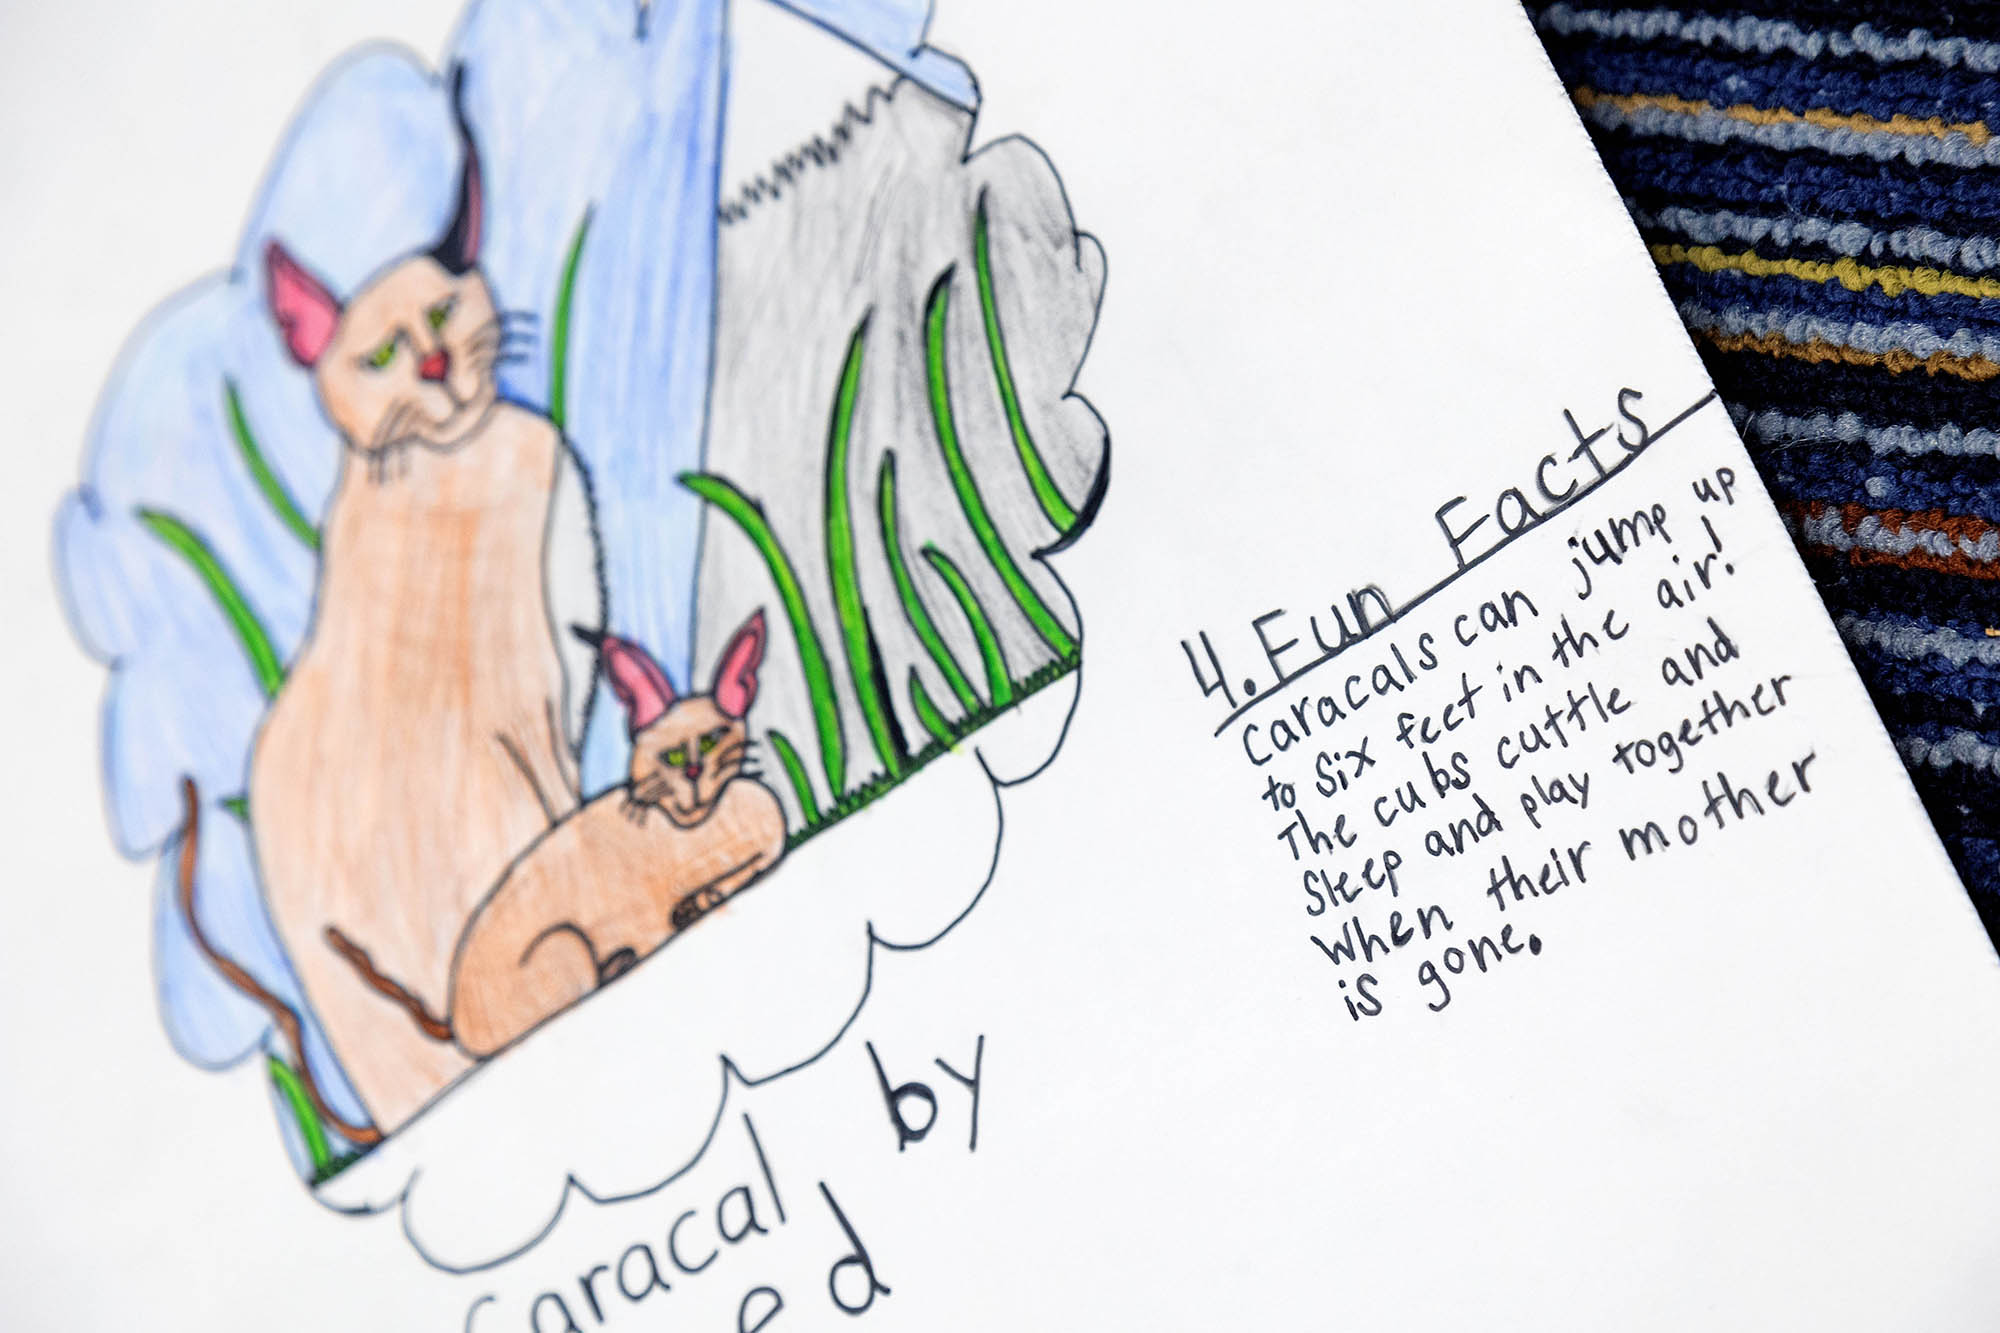 4. Fun Facts
Caracals can jump up
to six feet in the air!
The cubs cuttle and
Sleep and play together
When their mother
is gone.
Caracal by